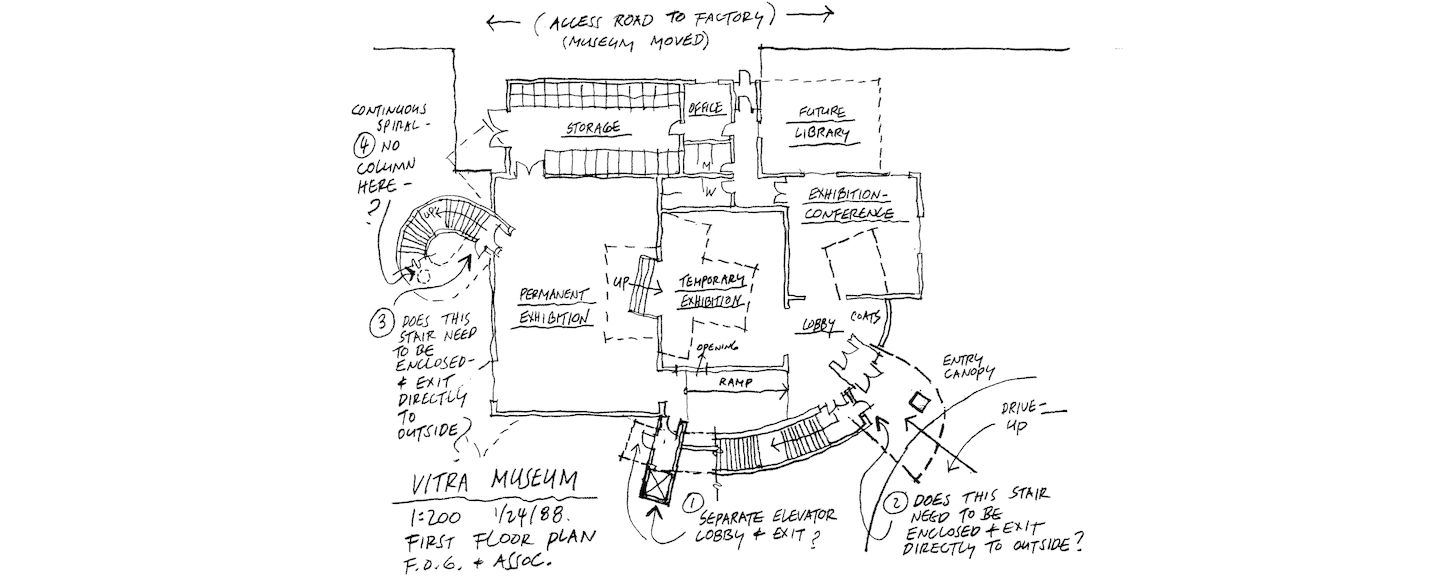 (ACCESS ROAD TO FACTORY)
(MUSEUM MOVED)
CONTINUOUS
SPIRAL -
④ NO
COLUMN
HERE -
?
STORAGE
OFFICE
M
W
FUTURE
LIBRARY
EXHIBITION-
CONFERENCE
UP
PERMANENT
EXHIBITION
UP
TEMPORARY
EXHIBITION
OPENING
RAMP
LOBBY
COATS
ENTRY
CANOPY
DRIVE-
UP
③ DOES THIS
STAIR NEED
TO BE
ENCLOSED-
& EXIT
DIRECTLY
TO
OUTSIDE?
① SEPARATE ELEVATOR
LOBBY & EXIT?
② DOES THIS STAIR
NEED TO BE
ENCLOSED & EXIT
DIRECTLY TO OUTSIDE?
VITRA MUSEUM
1:200 1/24/88.
FIRST FLOOR PLAN
F.O.G. & ASSOC.